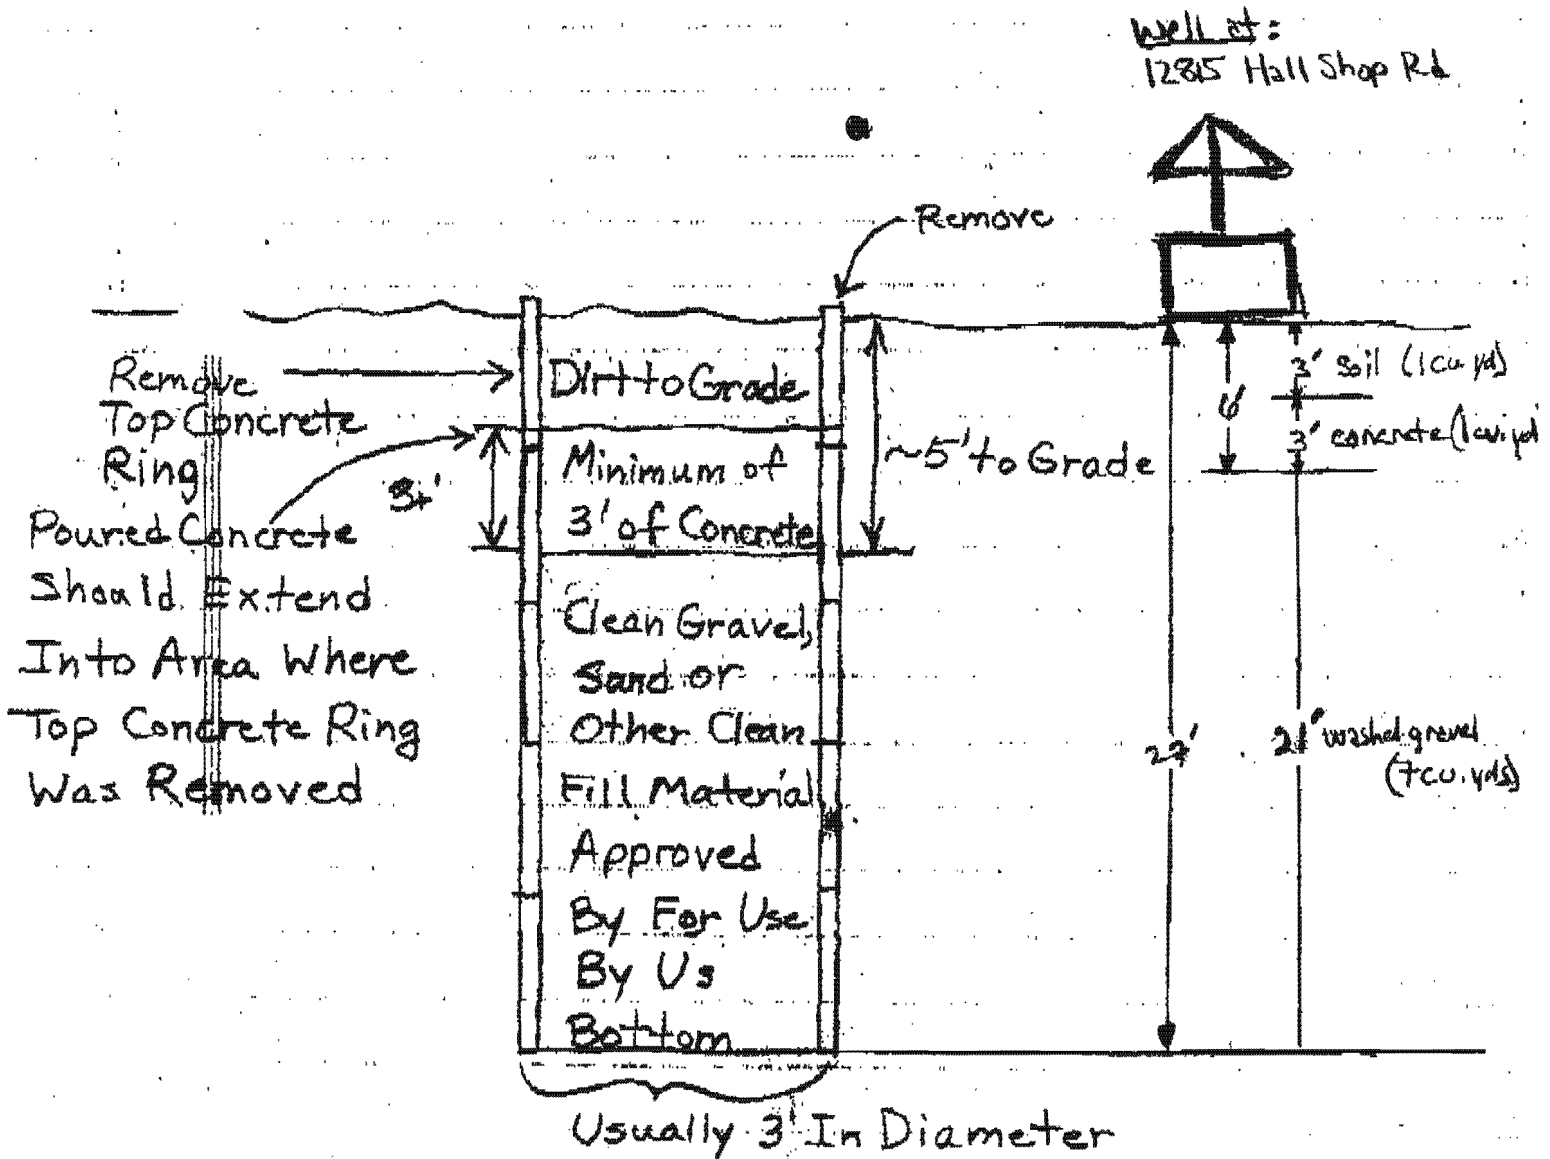 Well at:
12815 Hall Shop Rd
Remove
Remove
Top Concrete
Ring
Poured Concrete
Should Extend
Into Area Where
Top Concrete Ring
Was Removed
Dirt to Grade
Minimum of
3' of Concrete
Clean Gravel,
Sand or
Other Clean
Fill Material
Approved
By For Use
By Us
Bottom
Usually 3' In Diameter
~5' to Grade
6'
3' Soil (1 cu yd)
3' concrete (1 cu. yd
27'
21' washed gravel
(7 cu. yds)